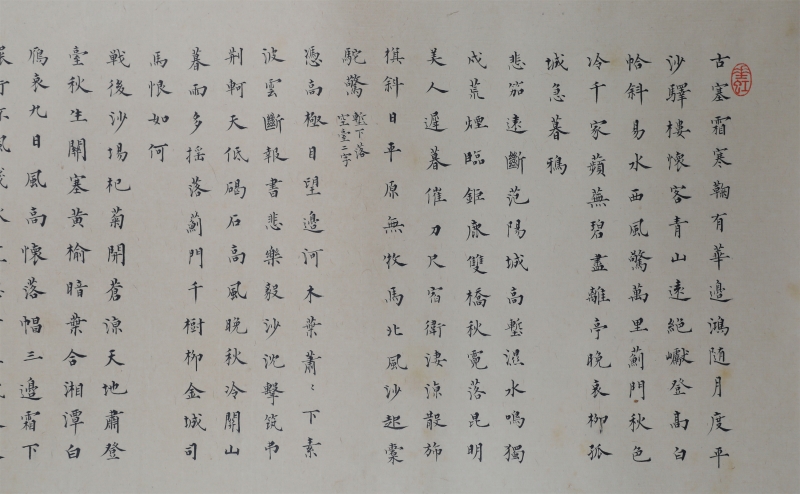 古塞霜寒鞠有華邊鴻隨月度平
沙驛樓懷客青山遠絕巘登高白
帢斜易水西風驚萬里薊門秋色
冷千家蘋蕪碧盡離亭晚衰柳孤
城急暮鴉
悲笳遠斷范陽城高塹濕水鳴獨
戍荒煙臨鉅鹿雙橋秋霓落昆明
美人遲暮催刀尺宿衛淒涼散旆
旗斜日平原無牧馬北風沙起橐
駝驚
塹下落
空壹二字
憑高極目望邊河木葉蕭﹕下素
波雲斷報書悲樂毅沙沈擊筑弔
荆軻天低碣石高風晚秋冷關山
暮雨多搖落薊門千樹柳金城司
馬恨如何
戰後沙場杞菊開蒼涼天地肅登
臺秋生關塞黃榆暗葉合湘潭白
鴈哀九日風高懷落帽三邊霜下